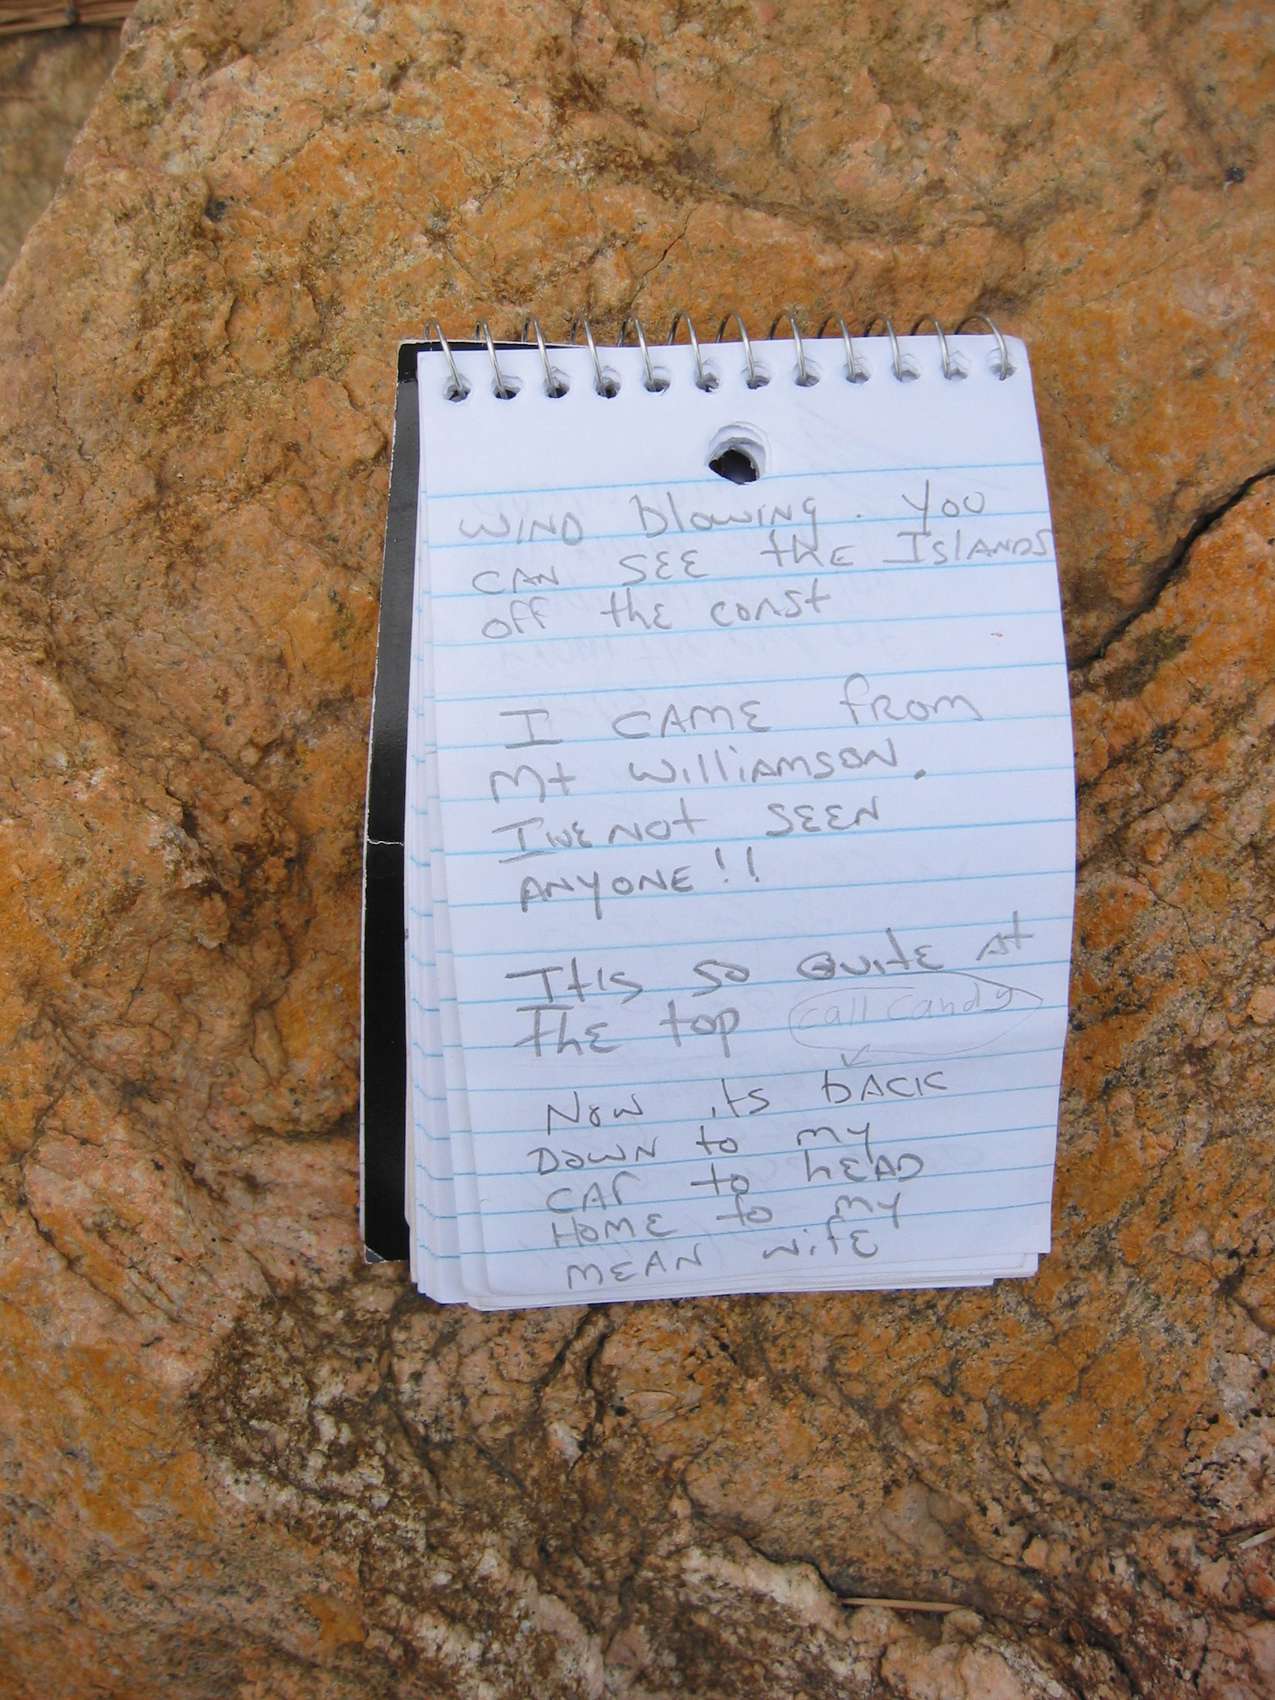 WIND blowing. You
CAN SEE thE IslANDS
off thE const
I CAME from
Mt WilliAMSON.
IveNot SEEN
ANYONE!!
ItIs so Quite At
ThE top
call candy
Now its bACK
DOWN to my
CAr to hEAD
HOME to my
MEAN wifE